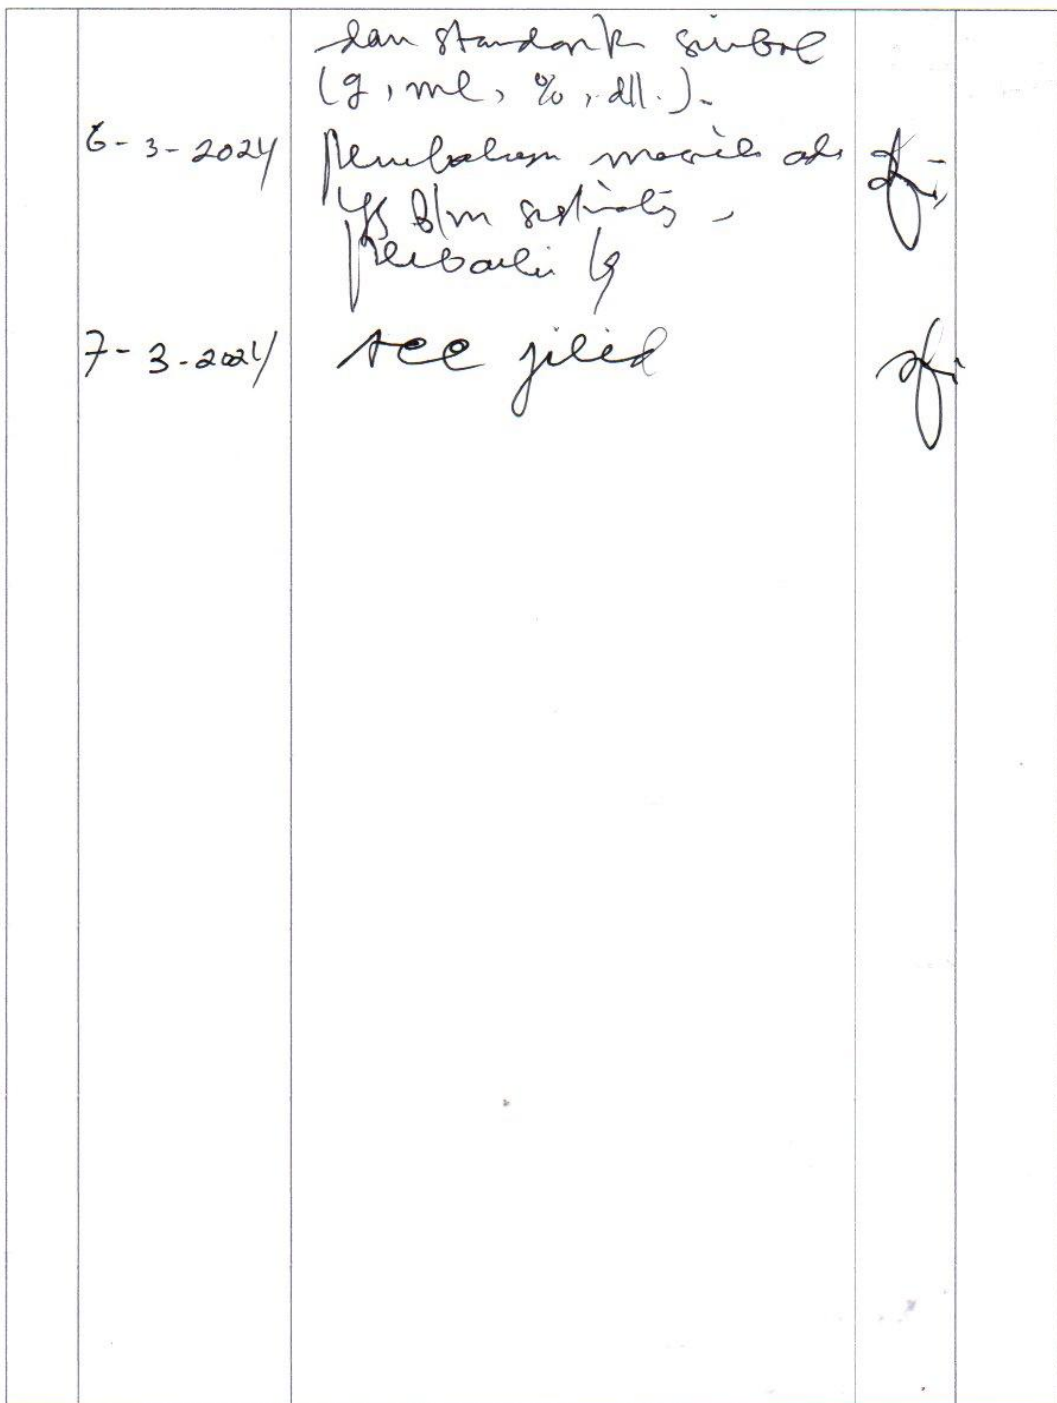 dan standark simbol
(g, ml, %, dll.).
6-3-2024 Pembahasan masih ada
yg blm
perbaiki lg
7-3-2024 Acc jilid